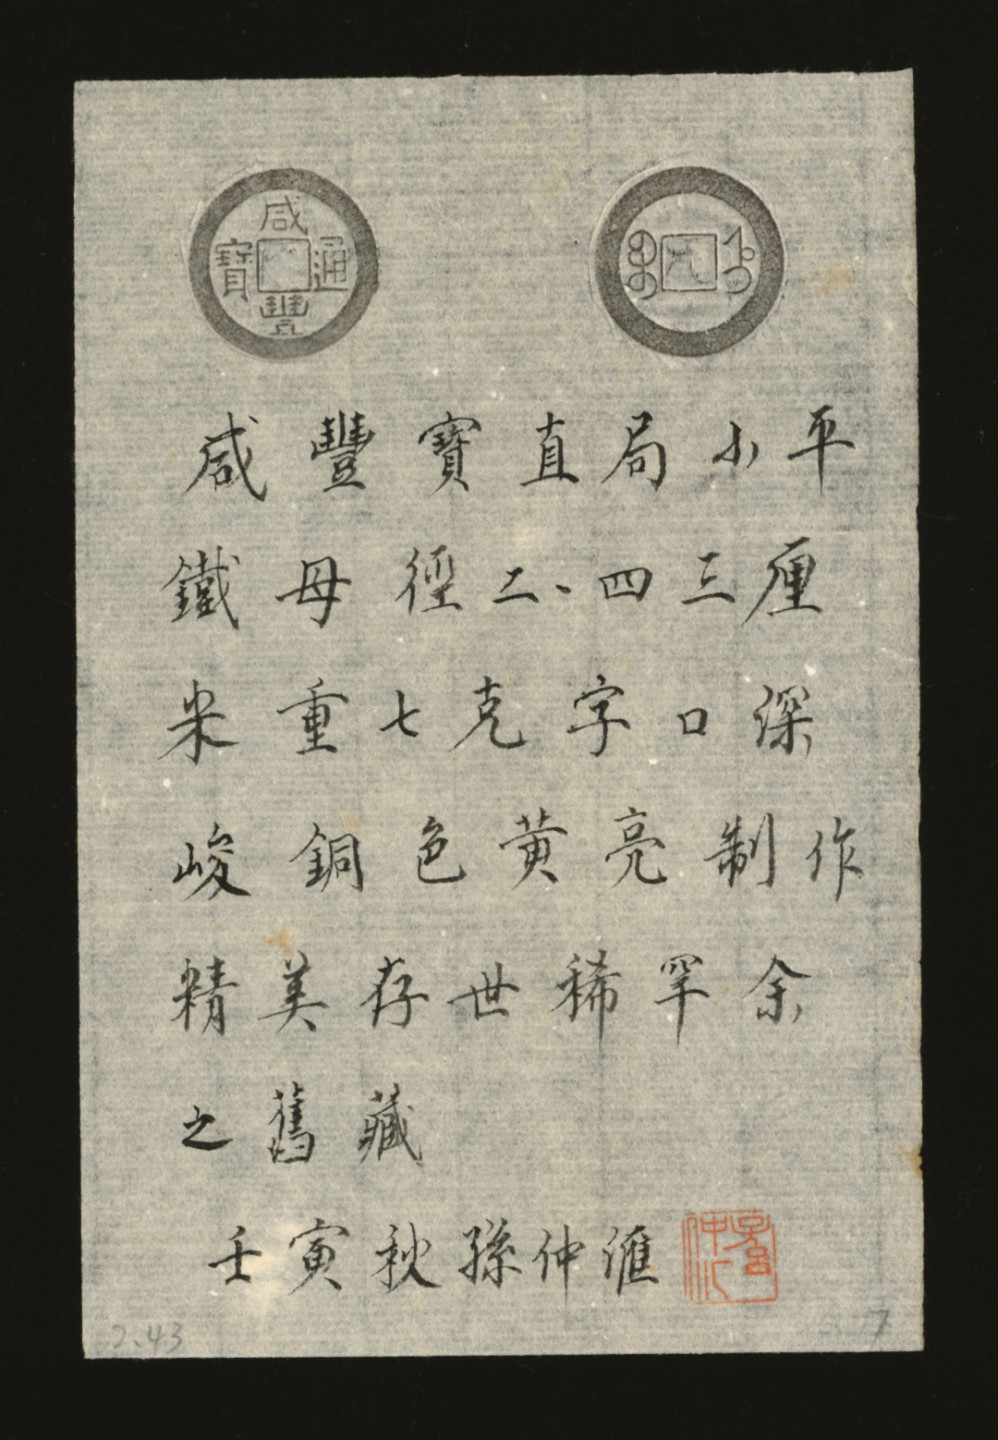 咸豐通寶
咸豐寶直局小平
鐵母徑二、四三厘
米重七克字口深
峻銅色黃亮制作
精美存世稀罕余
之舊藏
壬寅秋孫仲滙
孫仲汇
2.43
7